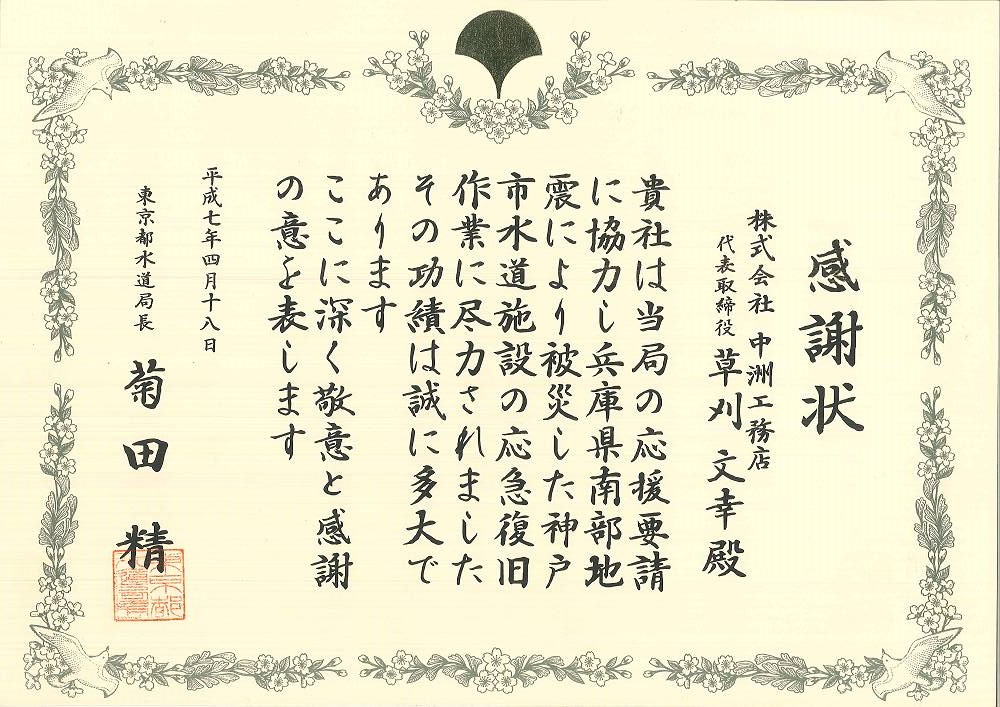 感謝状
株式会社 中洲工務店
代表取締役 草刈文幸殿
貴社は当局の応援要請
に協力し兵庫県南部地
震により被災した神戸
市水道施設の応急復旧
作業に尽力されました
その功績は誠に多大で
あります
ここに深く敬意と感謝
の意を表します
平成七年四月十八日
東京都水道局長 菊田精